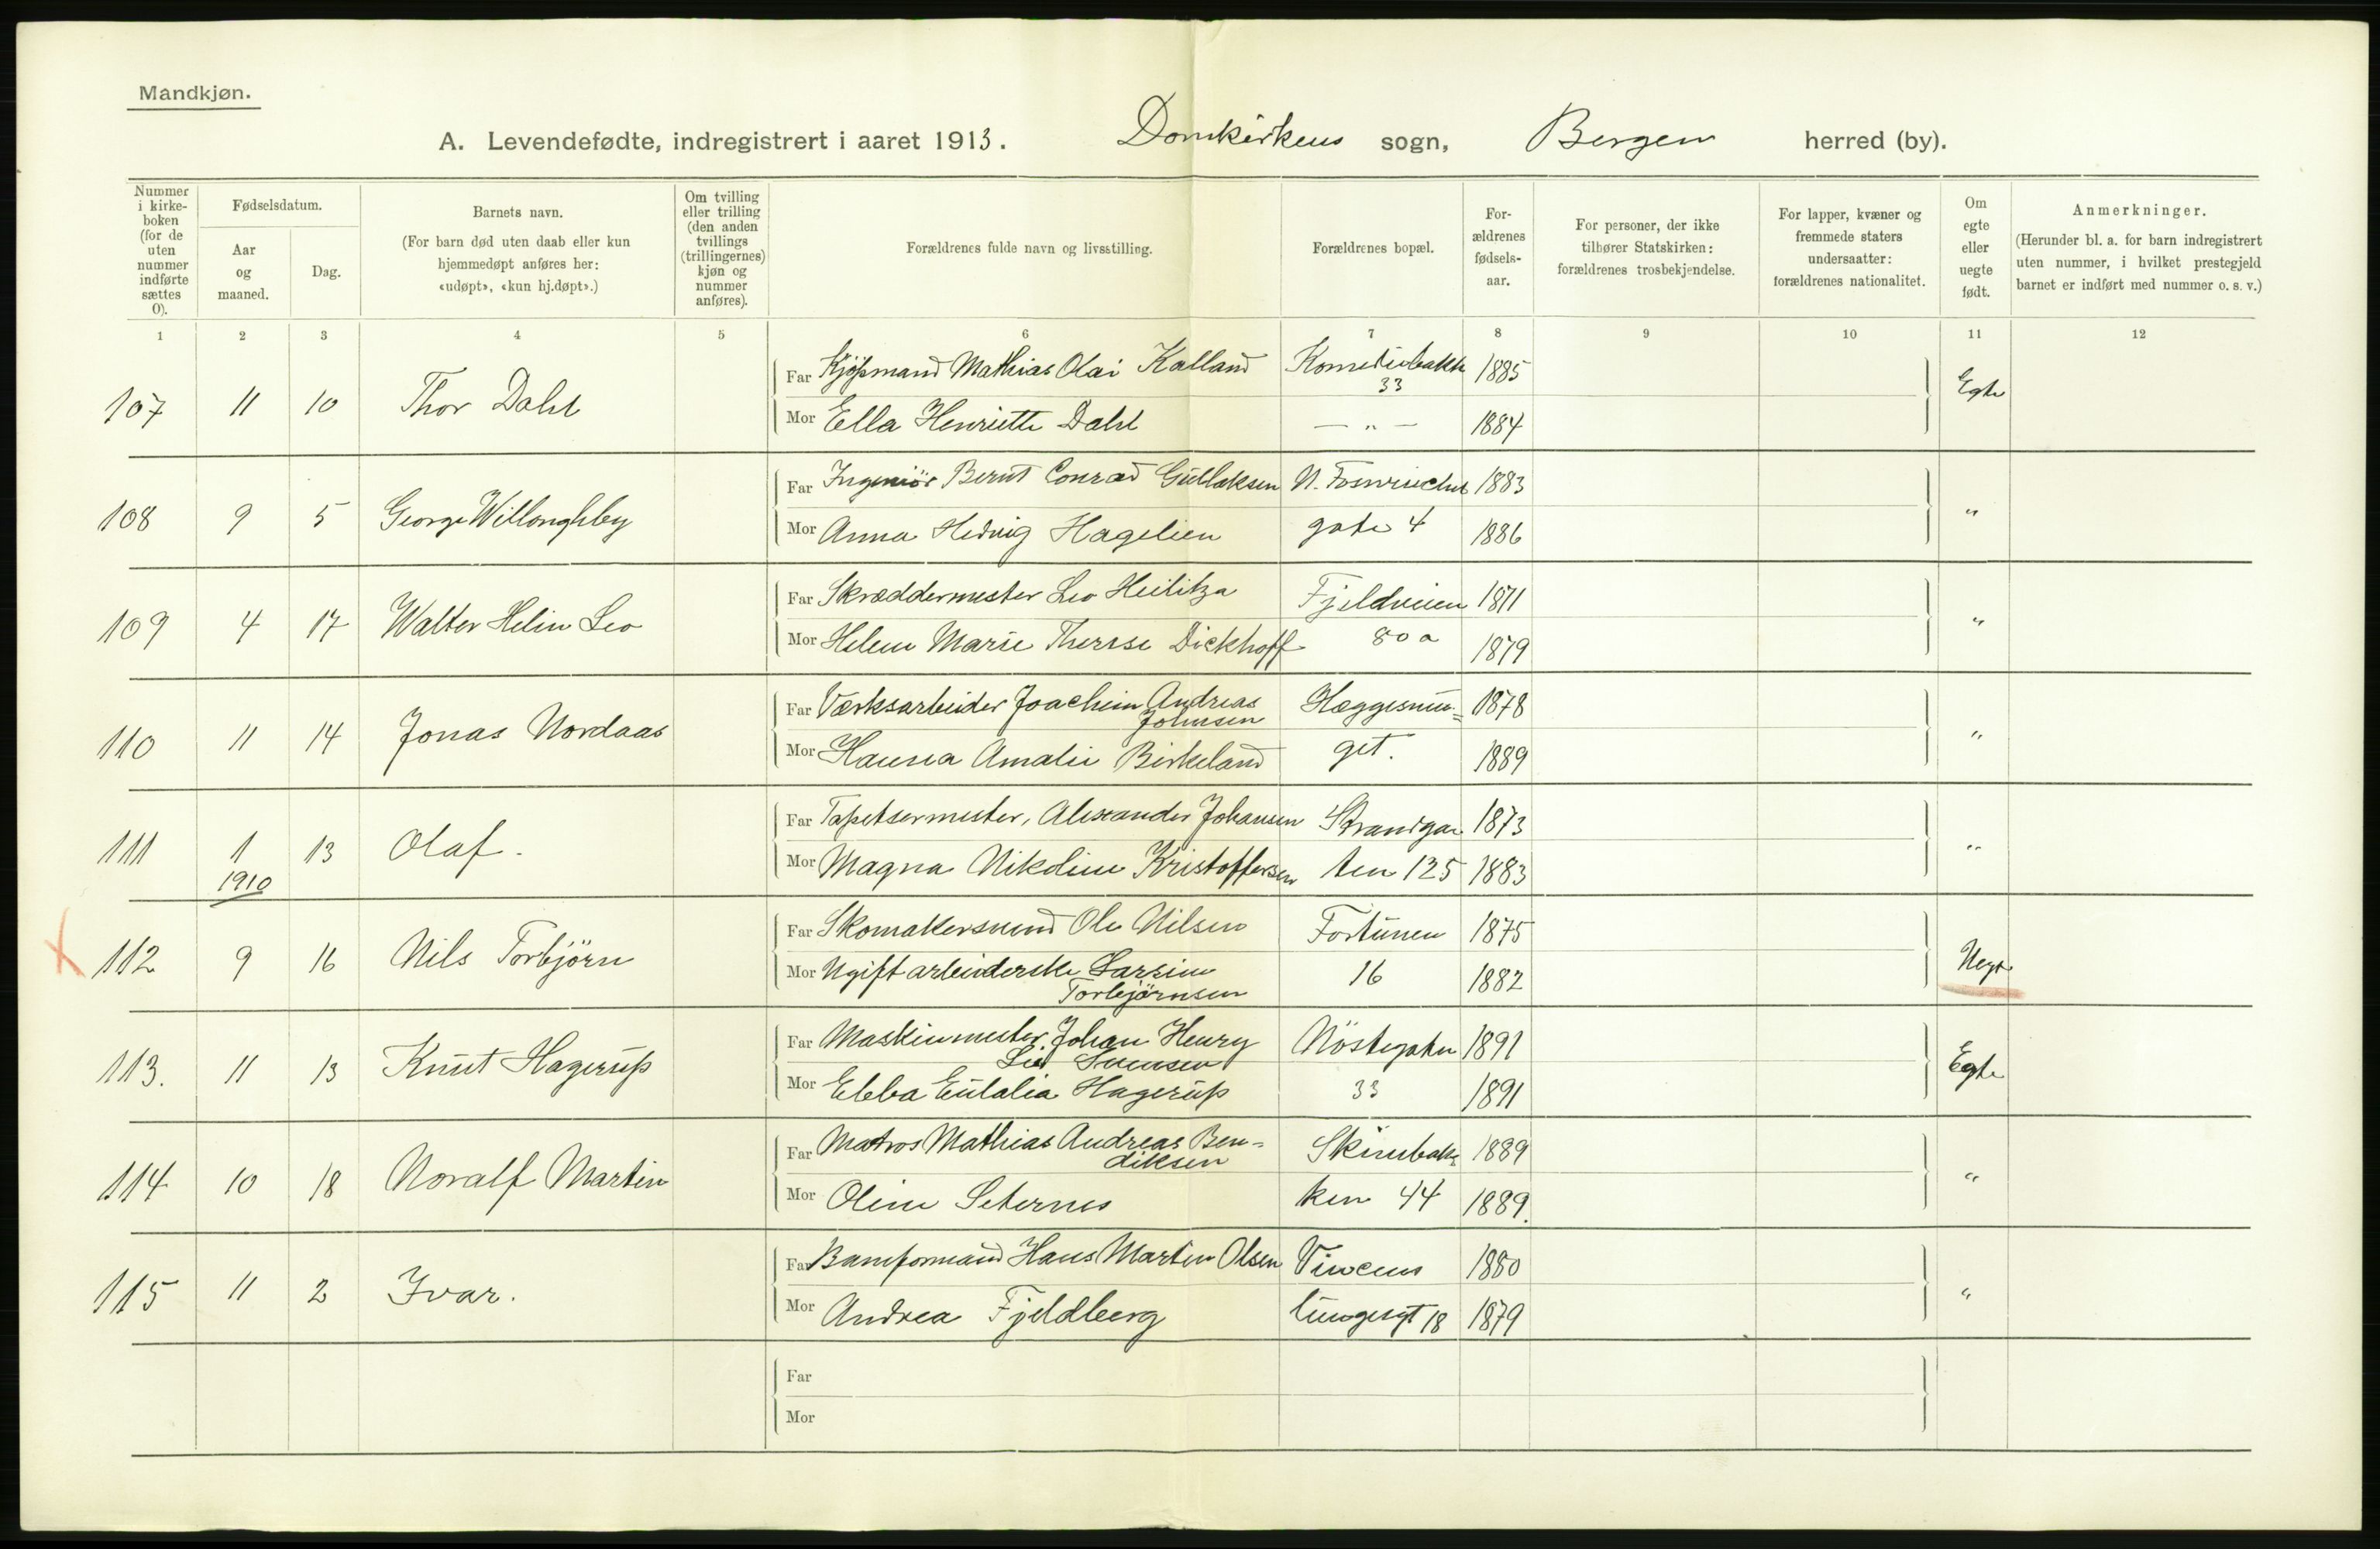 Mandkjøn.
A. Levendefødte, indregistrert i aaret 1913. Domkirkens sogn, Bergen herred (by).
Nummer i kirke-boken (for de uten nummer indførte sættes 0).
Fødselsdatum.
Aar og maaned.
Dag.
Barnets navn.
(For barn død uten daab eller kun hjemmedøpt anføres her: «udøpt», «kun hj.døpt».)
Om tvilling eller trilling (den anden tvillings (trillingernes) kjøn og nummer anføres).
Forældrenes fulde navn og livsstilling.
Forældrenes bopæl.
For-ældrenes fødsels-aar.
For personer, der ikke tilhører Statskirken: forældrenes trosbekjendelse.
For lapper, kvæner og fremmede staters undersaatter: forældrenes nationalitet.
Om egte eller uegte født.
Anmerkninger.
(Herunder bl. a. for barn indregistrert uten nummer, i hvilket prestegjeld barnet er indført med nummer o. s. v.)
1 2 3 4 5 6 7 8 9 10 11 12
107 11 10 Thor Dahl
Far Kjøpmand Mathias Olai Kalland Komediebakk 33 1885 Egte
Mor Ella Henriette Dahl — " — 1884
108 9 5 George Willonghby
Far Ingeniör Bernt Conrad Gullaksen N. 1883 "
Mor Anna Hedvig Hagelien gate 4 1886
109 4 17 Walter Helin Leo
Far Skræddermester Leo Heilitza Fjeldveien 1871 "
Mor Helene Marie Therese Dickhoff 80 a 1879
110 11 14 Jonas Nordaas
Far Værksarbeider Joachim Andreas Johnsen 1878 "
Mor Hanna Amalie Birkeland gt. 1889
111 1 1910 13 Olaf.
Far Tapetsermester, Alexander Johansen Strandga 1873 "
Mor Magna Nikoline Kristoffersen ten 125 1883
X 112 9 16 Nils Torbjörn
Far Skomakersvend Ole Nilsen Fortunen 1875 Uegte
Mor Ugift arbeiderske Larsine Torbjörnsen 16 1882
113. 11 13 Knut Hagerup
Far Maskinmester Johan Henry Svensen Nöstegaten 1891 Egte
Mor Ebba Eulalia Hagerup 33 1891
114 10 18 Noralf Martin
Far Matros Mathias Andreas Ben=diksen Skivebak= 1889 "
Mor Oline Seternes ken 44 1889.
115 11 2 Ivar.
Far Hans Martin Olsen Vincens 1880 "
Mor Andrea Fjeldberg lungesgt 18 1879
Far
Mor